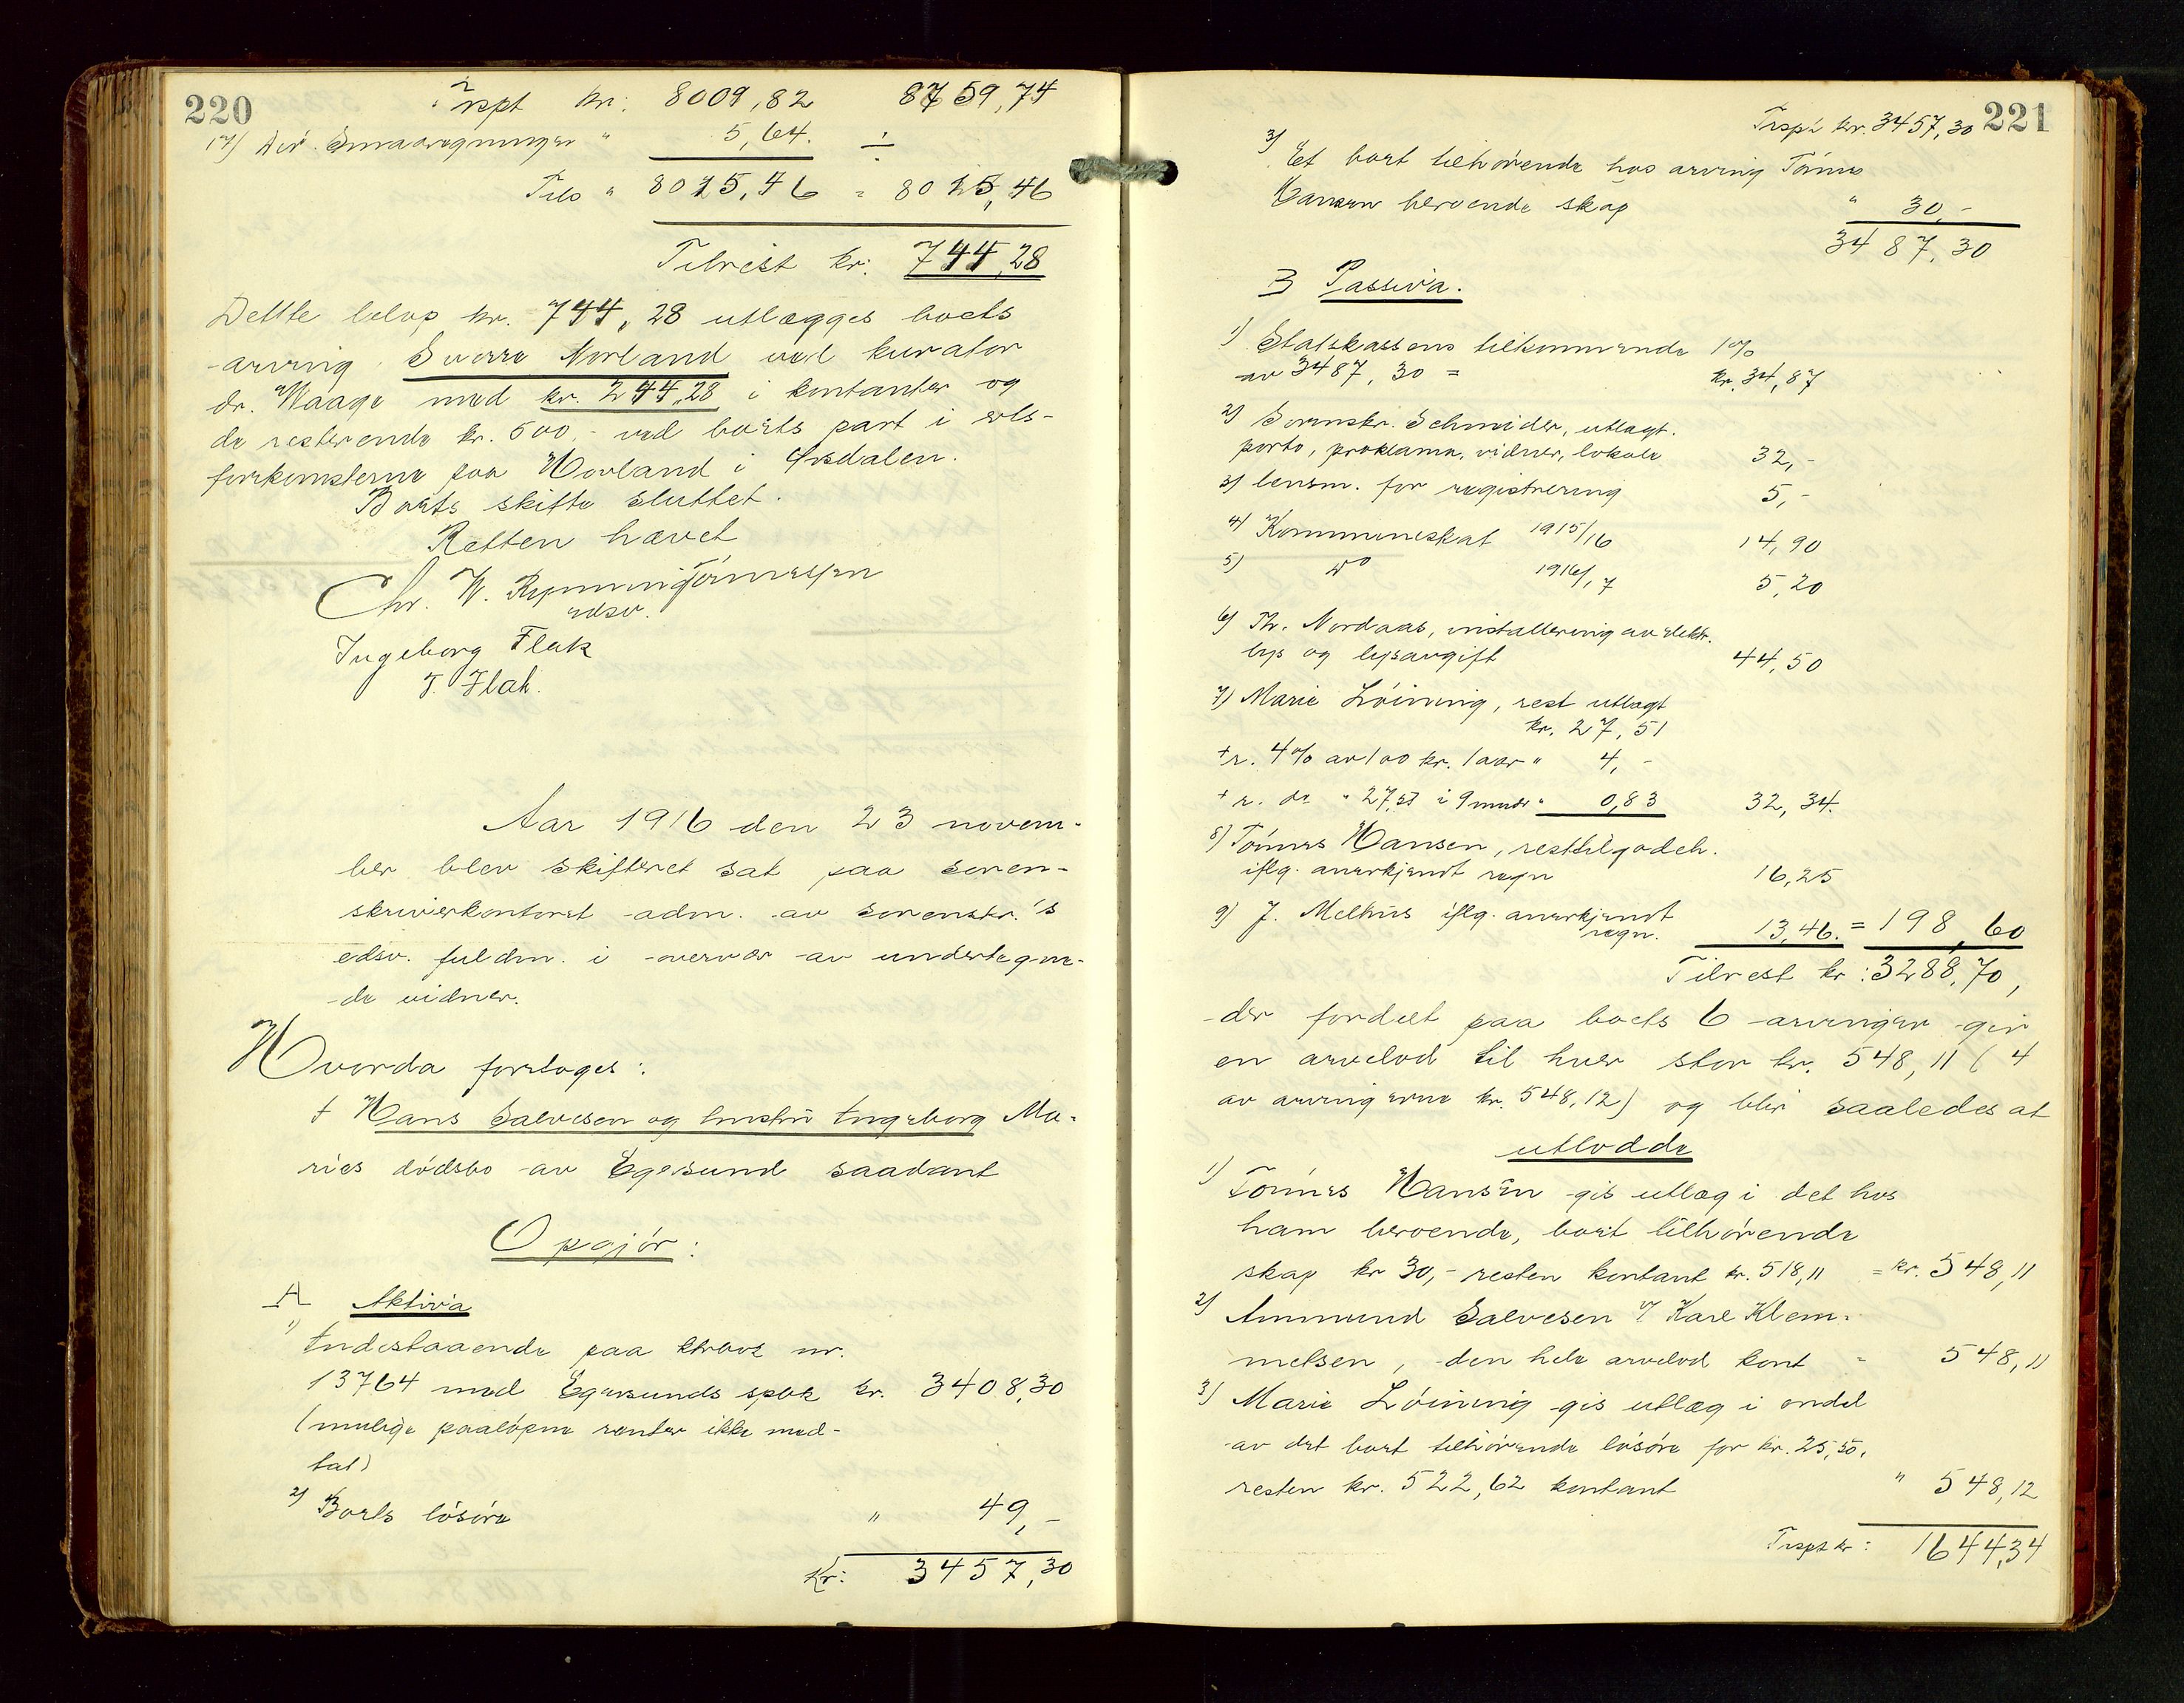 220
Trspt kr: 8009,82 8759,74
17) Div. Smaaregninger " 5,64. ÷
Tils " 8015,46 = 8015,46
Tilrest kr: 744,28
Dette beløp kr. 744,28 utlægges boets
arving Sverre Norland ved kurator
dr. Waage med kr. 244,28 i kontanter og
de resterende kr. 500,- ved boets part i
forekomsterne paa Hovland i Ørsdalen.
Boets skifte sluttet.
Retten hævet
Chr. W. Rynning Tønnessen
edsv.
Ingeborg Flak
T. Flak.
Aar 1916 den 23 novem-
ber blev skifteret sat paa soren-
skriverkontoret adm. av sorenskr.'s
edsv. fuldm. i overvær av undertegne-
de vidner.
Hvorda foretoges:
† Hans Salvesen og hustru Ingeborg Ma-
ries dødsbo av Egersund saadant
Opgjør:
A Aktiva
1)
Indestaaende paa ktrabok nr.
13764 med Egersunds spbk kr. 3408,30
(mulige paaløpne renter ikke med-
tat)
2) Boets løsøre " 49,-
Kr: 3457,30
221
Trspt kr. 3457,30
3) Et boet tilhørende hos arving Tønnes
Hansen beroende skap " 30,-
3487,30
B Passiva.
1) Statskassens tilkommende 1%
av 3487,30 = kr. 34,87
2) Sorenskr. Schneider, utlagt.
porto, proklama, vidner, lokale 32,-
3) lensm. for registrering 5,-
4) Kommuneskat 1915/16 14,90
5) do 1916/17 5,20
6) Th. Nordaas, installering av elektr.
lys og lysavgift 44,50
7) Marie Løining, rest utlagt
kr. 27,51
+ r. 4% av 100 kr. 1 aar " 4,-
+ r. do " 27,51 i 9 mndr " 0,83 32,34.
8) Tønnes Hansen, resttilgodeh.
iflg. anerkjendt regn 16,25
9) J. Melhus iflg. anerkjendt
regn. 13,46. = 198,60
Tilrest kr: 3288,70,
der fordelt paa boets 6 arvinger gir
en arvelod til hver stor kr. 548,11 (4
av arvingerne kr. 548,12) og blir saaledes at
utlodde
1) Tønnes Hansen gis utlæg i det hos
ham beroende, boet tilhørende
skap kr 30,- resten kontant kr. 518,11 = kr. 548,11
2) Ammund Salvesen v/ Karl Klem-
metsen, den hele arvelod kont " 548,11
3) Marie Løining gis utlæg i endel
av det boet tilhørende løsøre for kr. 25,50.
resten kr. 522,62 kontant " 548,12
Trspt kr: 1644,34